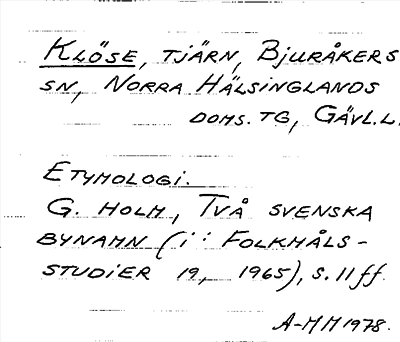 KLÖSE, TJÄRN, BJURÅKERS
SN, NORRA HÄLSINGLANDS
DOMS. TG, GÄVL.L.
ETYMOLOGI.
G. HOLM, TVÅ SVENSKA
BYNAMN (i: FOLKMÅLS-
STUDIER 19, 1965), S. 11 ff.
A-MM 1978.